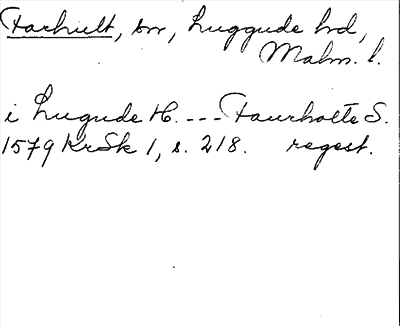 Farhult, sn, Luggude hd,
Malm. l.
i Lugude H. --- Faurholte S.
1579 KrSk 1, s. 218. regest.